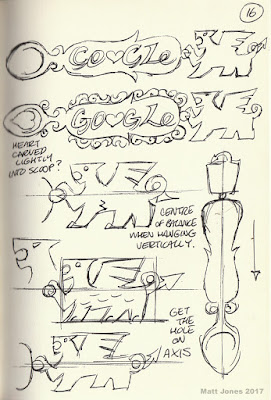 16
GO♥GLE
GO♥GLE
HEART
CARVED
LIGHTLY
INTO SCOOP?
CENTRE
OF BALANCE
WHEN HANGING
VERTICALLY.
GET
THE
HOLE
ON
AXIS
Matt Jones 2017